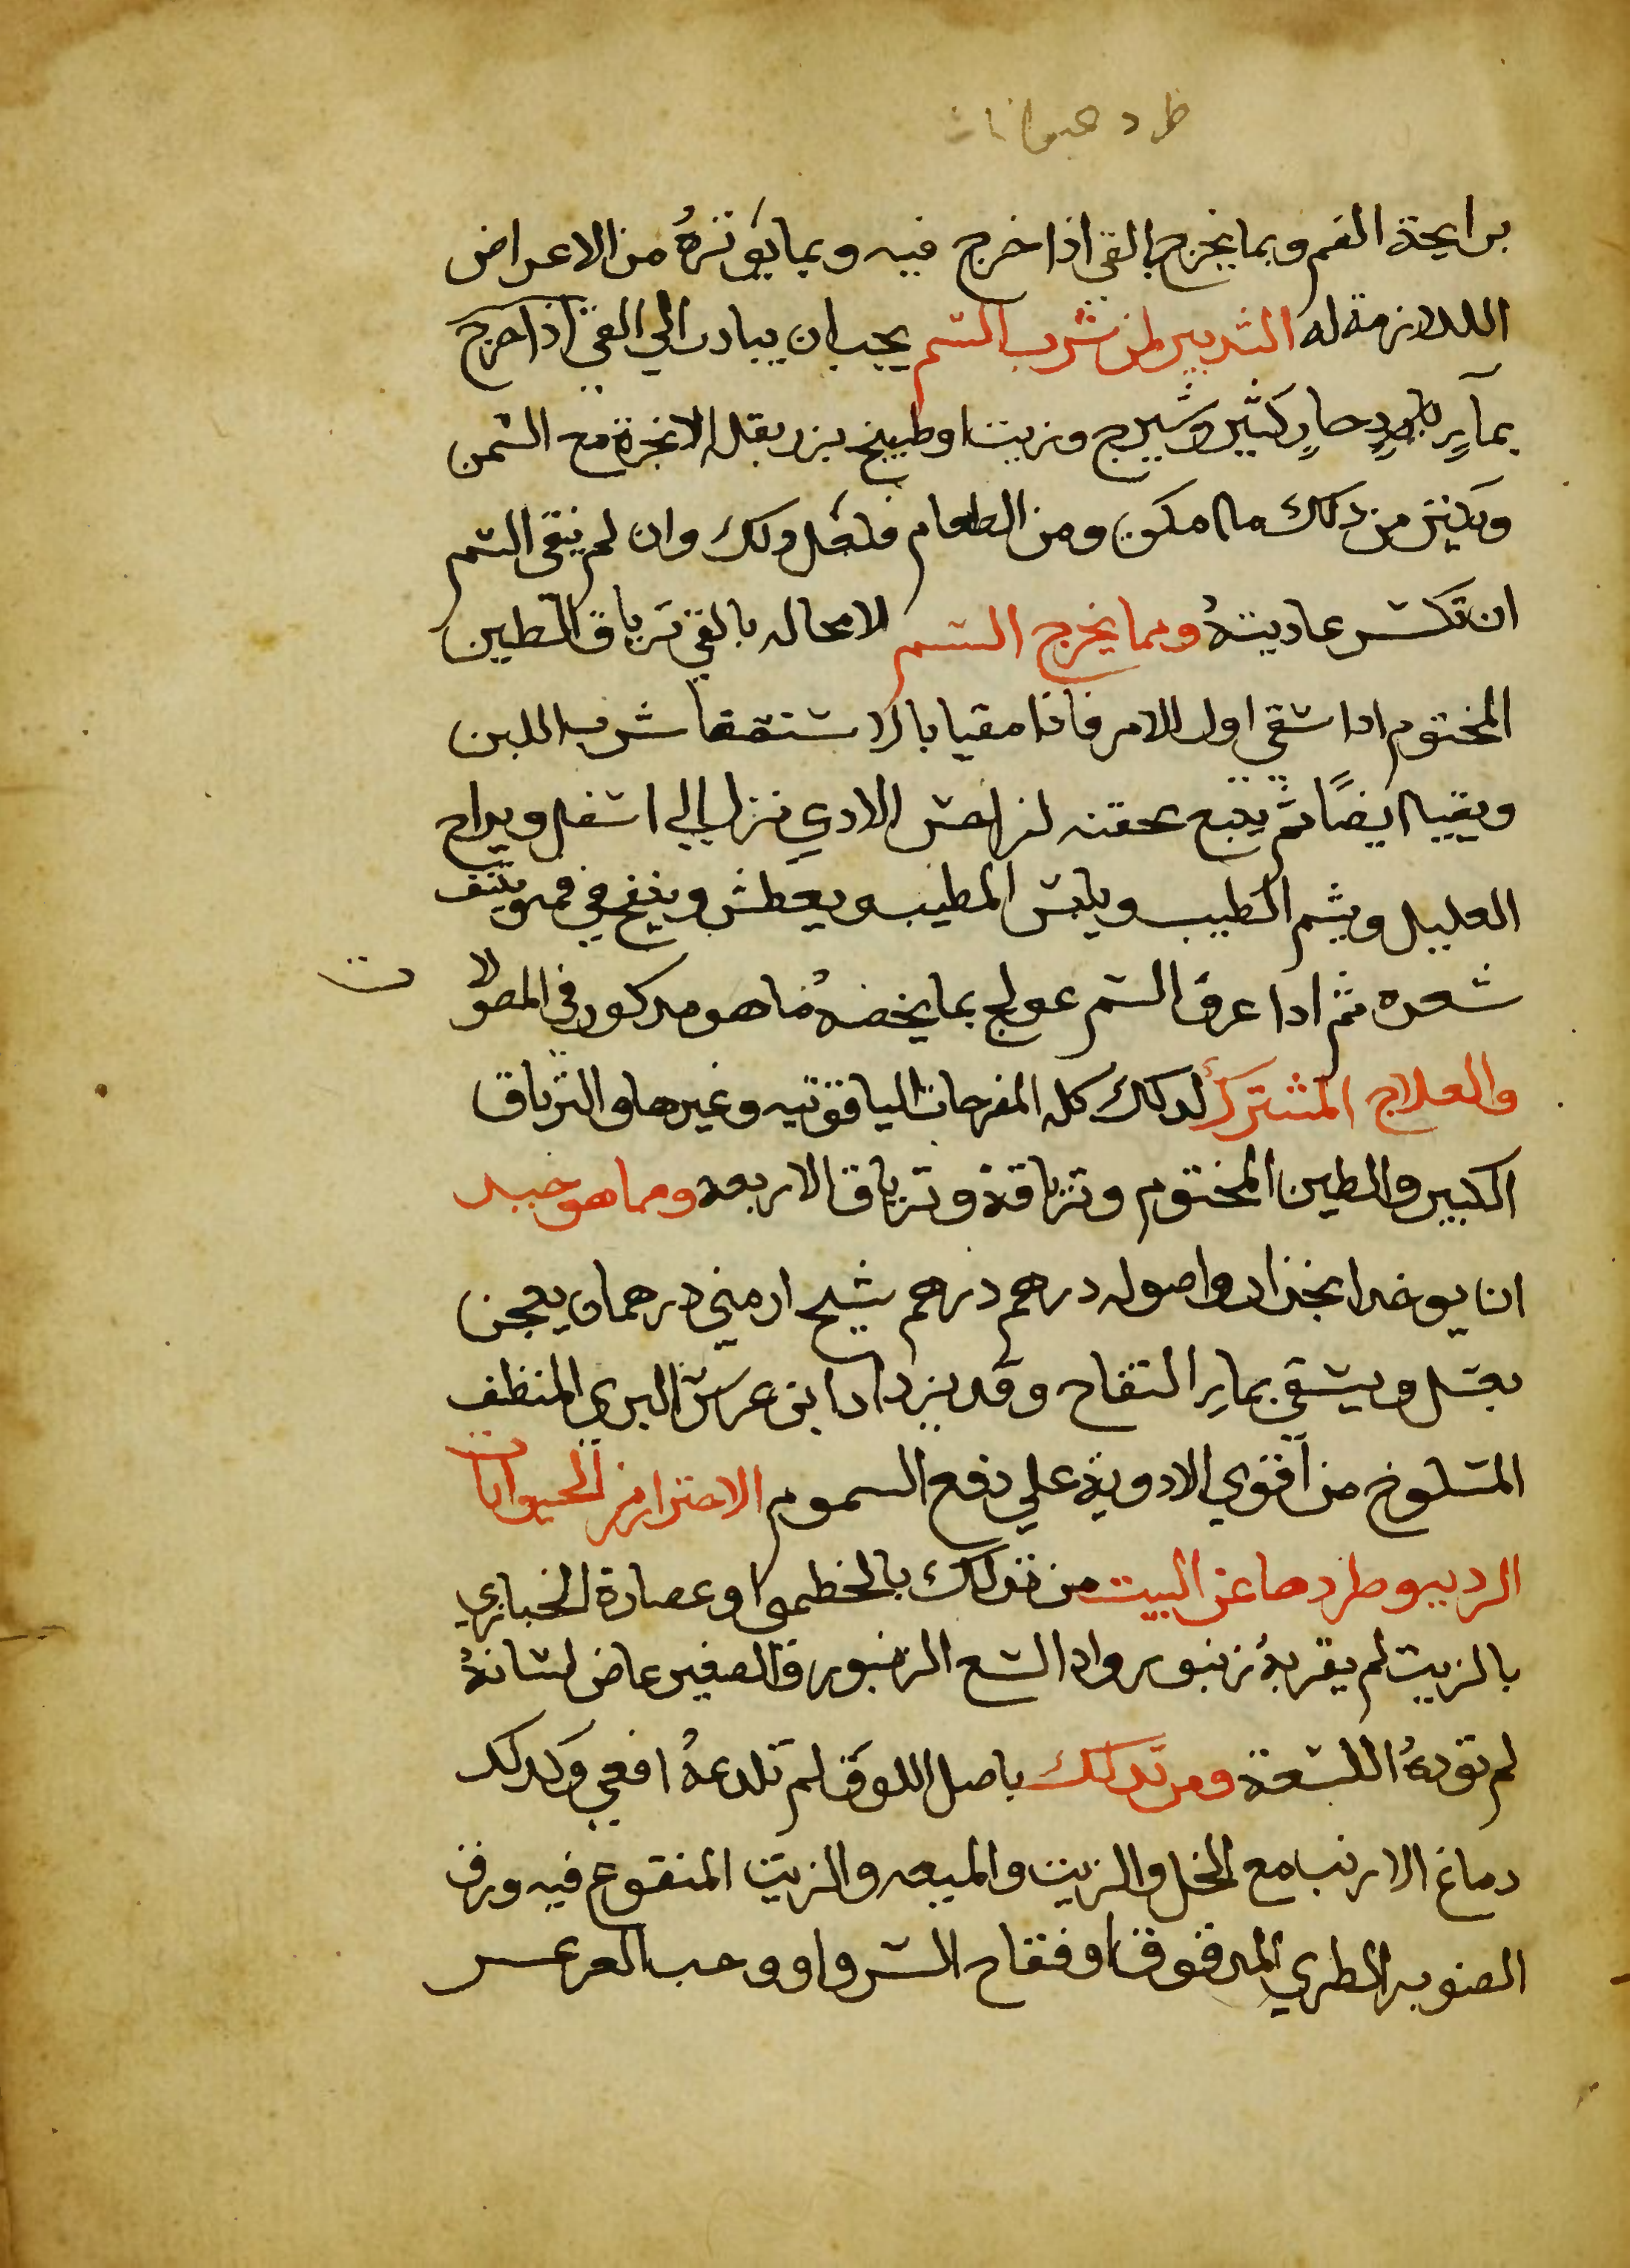 طرد حيوانات
برايحة الفم وبما يخرج بالقي اذا خرج فيه وبما يوثرهُ من الاعراض
اللازمة له التدبير لمن شرب السم يجب ان يبادر الي القي اذا خرج
بمآءٍ حارٍ كثير وشيرج وزيت او طبيخ بزر بقله الانجرة مع السمن
ويكثر من ذلك ما امكن ومن الطعام فلعل ذلك وان لم ينقى السم
ان تكسر عاديتهُ ومما يخرج السم لا محاله بالقي ترياق الطين
المختوم اذا سقي اول الامر فاذا مقيا بالاستقصا شرب اللبن
ويقييا ايضًا ثم يتبع بحقنه لمن احس الاذي نزل الي اسفل ويراح
العليل ويشم الطيب ويلبس المطيب ويعطش وينفخ في فمه وينتف
شعره ثم اذا عرف السم عولج بما يخصهُ مما هو مذكور في المصولات
والعلاج المشترك لذلك كله المفرحات الياقوتيه وغيرها والترياق
الكبير والطين المختوم وترياقة وترياق الاربعه ومما هو جيد
ان يوخد انجذان واصوله درهم درهم شيح ارمني درهمان يعجن
بعسل ويسقي بماءِ التفاح وقد يزداد ابن عرس البري المنظف
المسلوخ من اقوي الادوية علي دفع السموم الاحتراز من الحيوانات
الرديه وطردها عن البيت من تدلك بالخطمي او عصارة الخبازي
بالزيت لم يقربهُ زنبور واذا لسع الزنبور فالصفير عاض لسانهُ
لم توذهُ اللسعة ومن تدلك باصل اللوف لم تلدغهُ افعي وكدلك
دماغ الارنب مع الخل والزيت والميعه والزيت المنقوع فيه ورق
الصنوبر الطري المدقوق او فقاح السرو او وحب العرعر